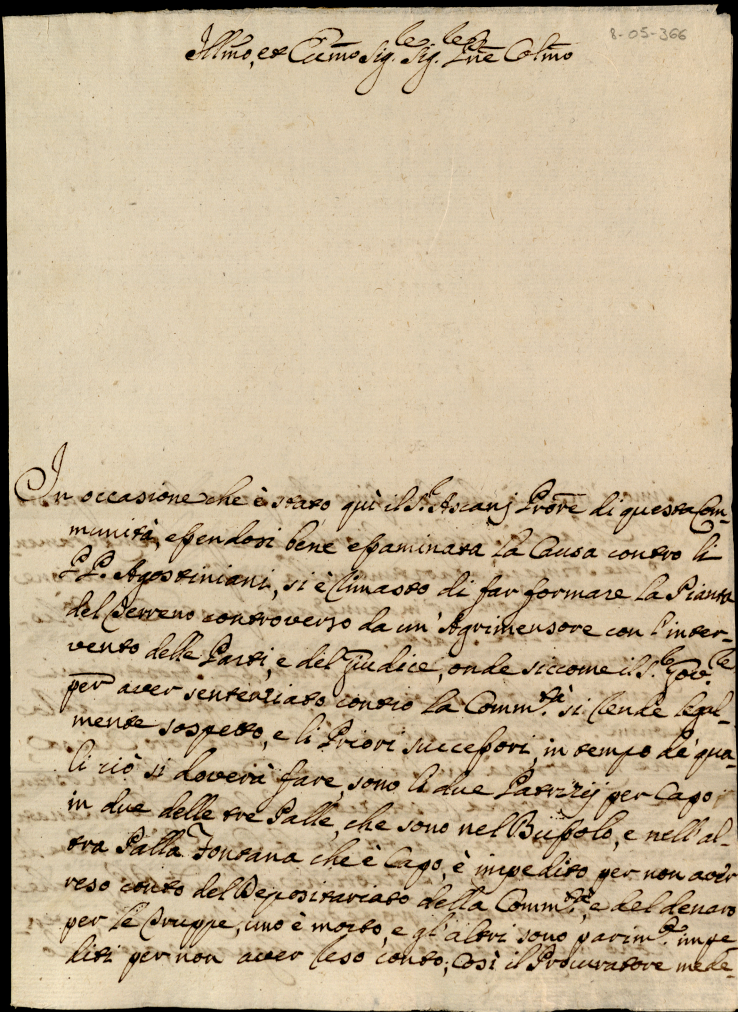 8-05-366
Illmo, et Eccmo Sig.re Sig.re Pne Colmo
In occasione che è stato quì il S.r Ascanj Prore di questa Com-
munità, essendosi bene essaminata la Causa contro li
PP. Agostiniani, si è rimasto di far formare la Pianta
del Terreno controverso da un' Agrimensore con l'inter-
vento delle Parti, e del Giudice, onde siccome il S.r Gov.re
per aver sentenziato contro la Comm.tà si rende legal-
mente sospetto, e li Priori successori, in tempo de' qua-
li ciò si doverà fare, sono li due Patrizij per Capo
in due delle tre Palle, che sono nel Bussolo, e nell'al-
tra Palla Fontana che è Capo, è impedito per non aver
reso conto del Depositariato della Comm.tà, e del denaro
per le Truppe, uno è morto, e gl'altri sono parim.te impe-
diti per non aver reso conto; Così il Procuratore mede-